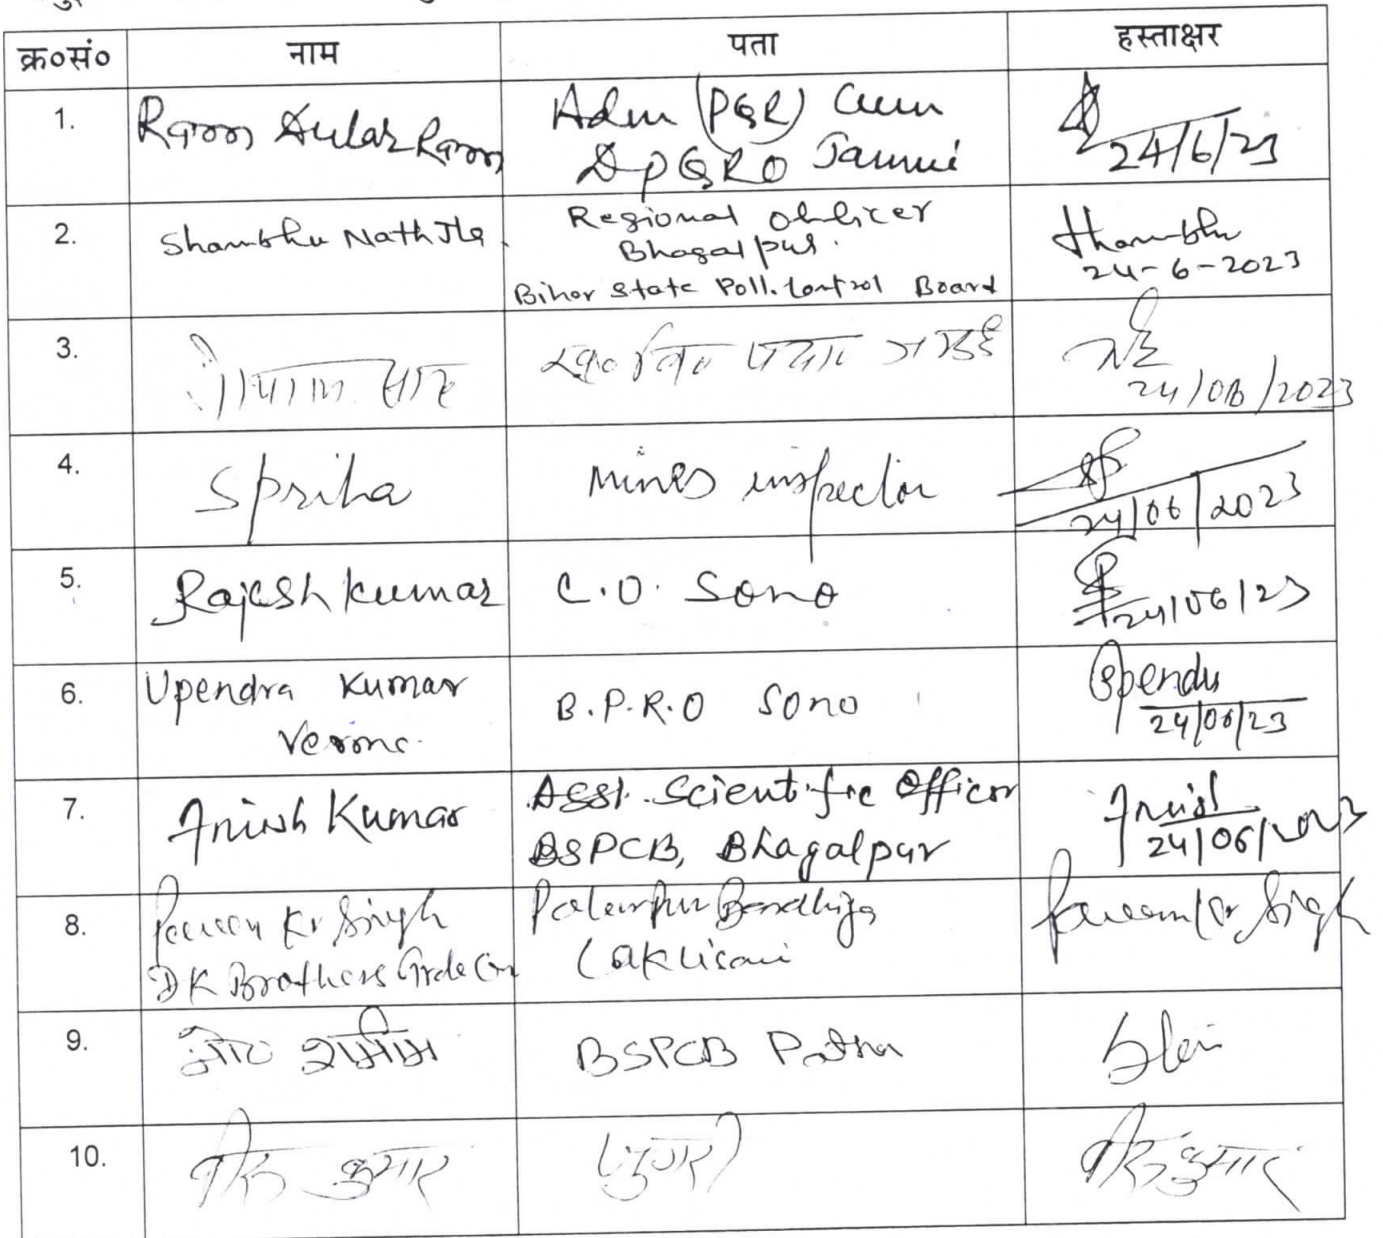 क्र०सं० नाम पता हस्ताक्षर
1. Ram Dular Ram Adm (PGR) Cum
DPGRO Jamui 24/6/23
2. Shambhu Nath Jha Regional Officer
Bhagalpur.
Bihar State Poll. Control Board Shambhu
24-6-2023
3. 24/06/2023
4. Spriha Mines inspector 24/06/2023
5. Rajesh Kumar C.O. Sono 24/06/23
6. Upendra Kumar
Verma B.P.R.O Sono Upendra
24/06/23
7. Anish Kumar Asst. Scientific Officer
BSPCB, Bhagalpur Anish
24/06/2023
8. Kr Singh
DK Brothers Lakhisarai Kr Singh
9. मो० शमीम BSPCB Patna
10. कुमार कुमार